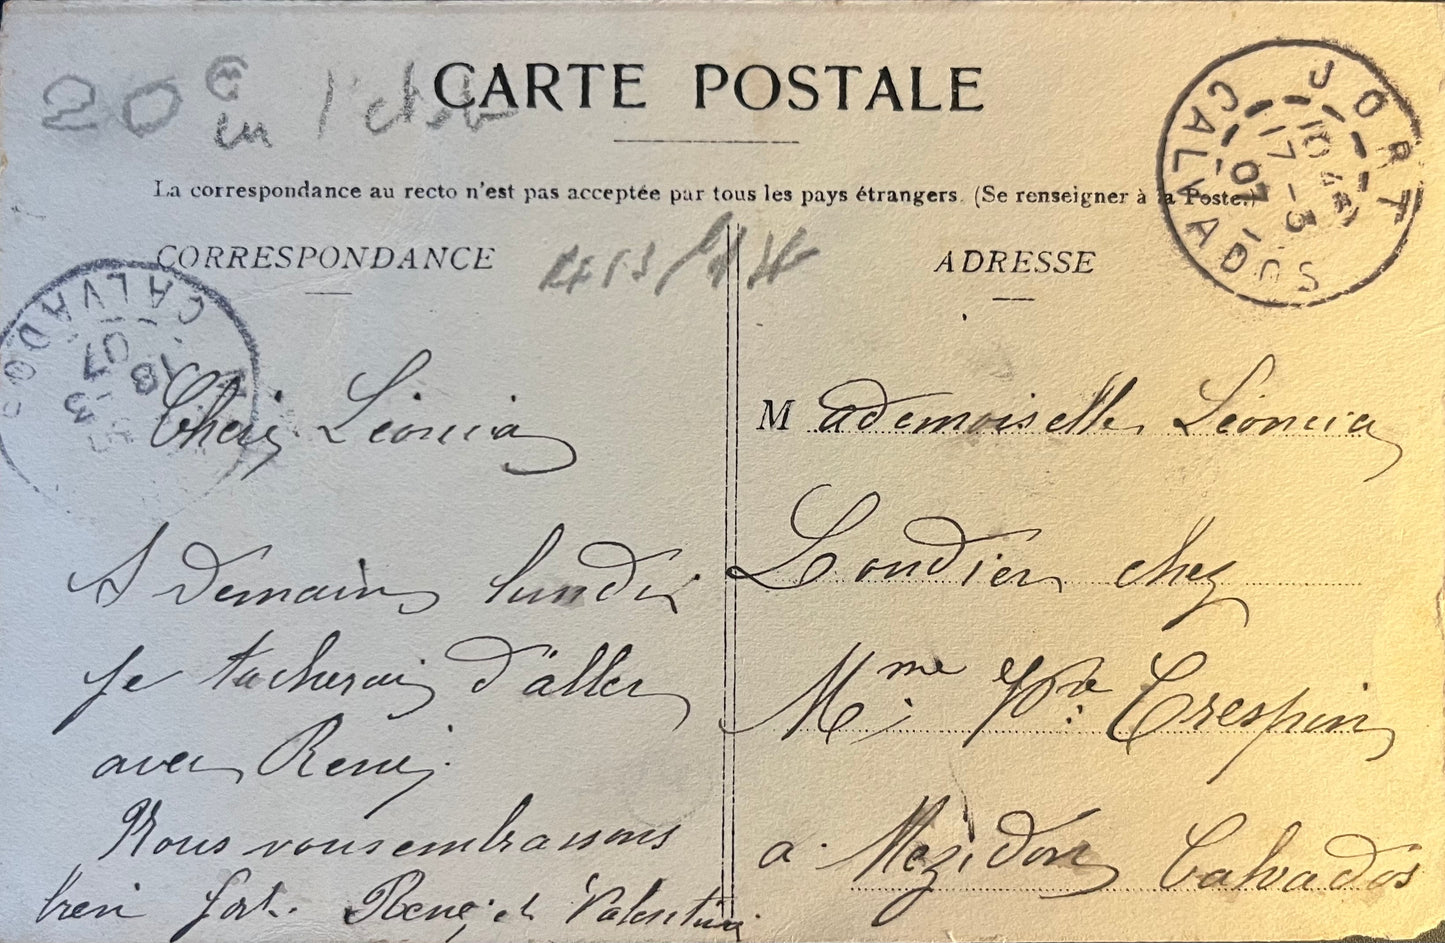 20 en l'état
CARTE POSTALE
La correspondance au recto n'est pas acceptée par tous les pays étrangers. (Se renseigner à la Poste.)
CORRESPONDANCE
ADRESSE
JORT
10
17 - 3
07
CALVADOS
CALVADOS
18 - 3
07
Cheri Léoncia
A Demain lundi
je tacherai d'aller
avec René.
Nous vous embrassons
bien fort. René et Valentine
Mademoiselle Léoncia
Londier chez
Mme Vve Crespin
a Mezidon Calvados